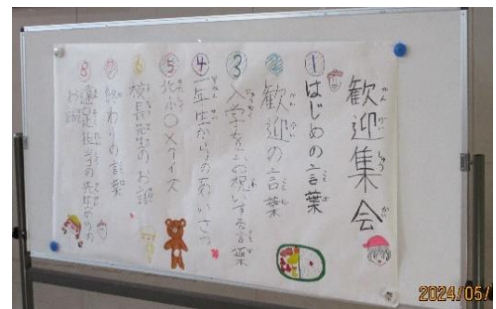 歓迎集会
①はじめの言葉
②歓迎の言葉
③入学をお祝いする言葉
④一年生からのあいさつ
⑤○×クイズ
⑥校長先生のお話
⑦終わりの言葉
⑧担当の先生からの
お話
2024/05/